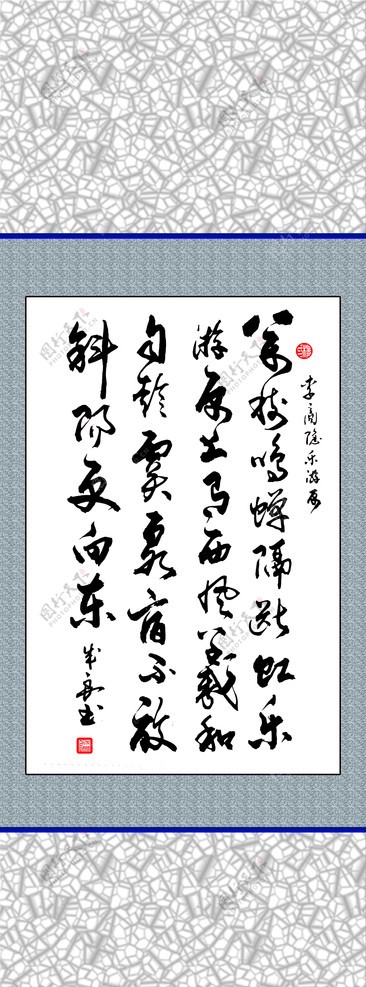 李商隐乐游原
万树鸣蝉隔断虹乐
游原上有西风羲和
自趁虞泉宿不放
斜阳更向东
书
图行天下